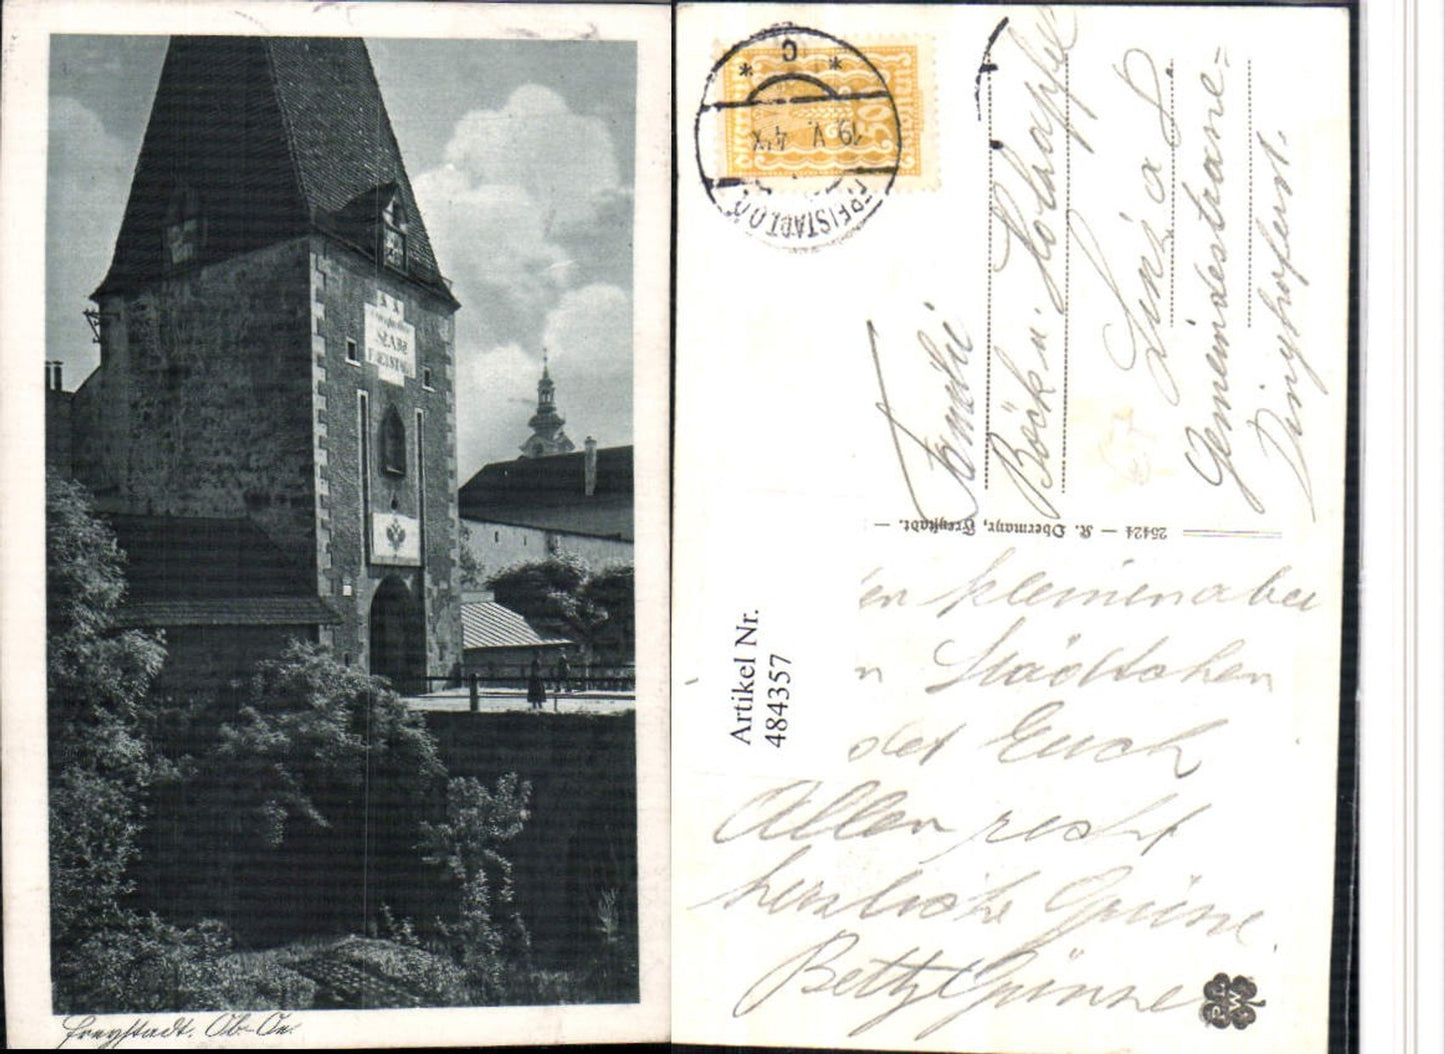 STADT
FREISTADT
Freystadt. Ob.-Oe.
50
FREISTADT O.Ö.
* C *
19 V
Familie
Böck u. Holzapfel
Linz a D.
Gemeindestrasse
25424 — K. Obermayr, Freystadt. —
Artikel Nr.
484357
en kleinen aber
n Städtchen
det Euch
Allen recht
herzliche Grüsse.
Betty